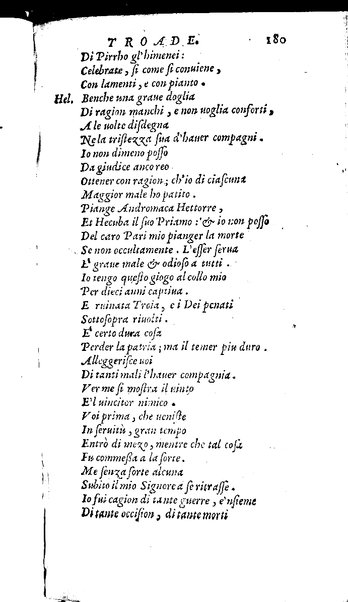 TROADE. 180
Di Pirrho gl'himenei:
Celebrate, ſi come ſi conuiene,
Con lamenti, e con pianto.
Hel. Benche una graue doglia
Di ragion manchi, e non uoglia conforti,
A le uolte diſdegna
Ne la triſtezza ſua d'hauer compagni.
Io non dimeno poſſo
Da giudice anco reo
Ottener con ragion; ch'io di ciaſcuna
Maggior male ho patito.
Piange Andromaca Hettorre,
Et Hecuba il ſuo Priamo: & io non poſſo
Del caro Pari mio pianger la morte
Se non occultamente. L'eſſer ſerua
E' graue male & odioſo a tutti.
Io tengo queſto giogo al collo mio
Per dieci anni captiua.
E ruinata Troia, e i Dei penati
Sottoſopra riuolti.
E' certo dura coſa
Perder la patria; ma il temer piu duro.
Alleggeriſce uoi
Di tanti mali l'hauer compagnia.
Ver me ſi moſtra il uinto
E'l uincitor nimico.
Voi prima, che ueniſte
In ſeruitù, gran tempo
Entrò di mezo, mentre che tal coſa
Fu commeſſa a la ſorte.
Me ſenza ſorte alcuna
Subito il mio Signore a ſe ritraſſe.
Io fui cagion di tante guerre, e'nſieme
Di tante occiſion, di tante morti